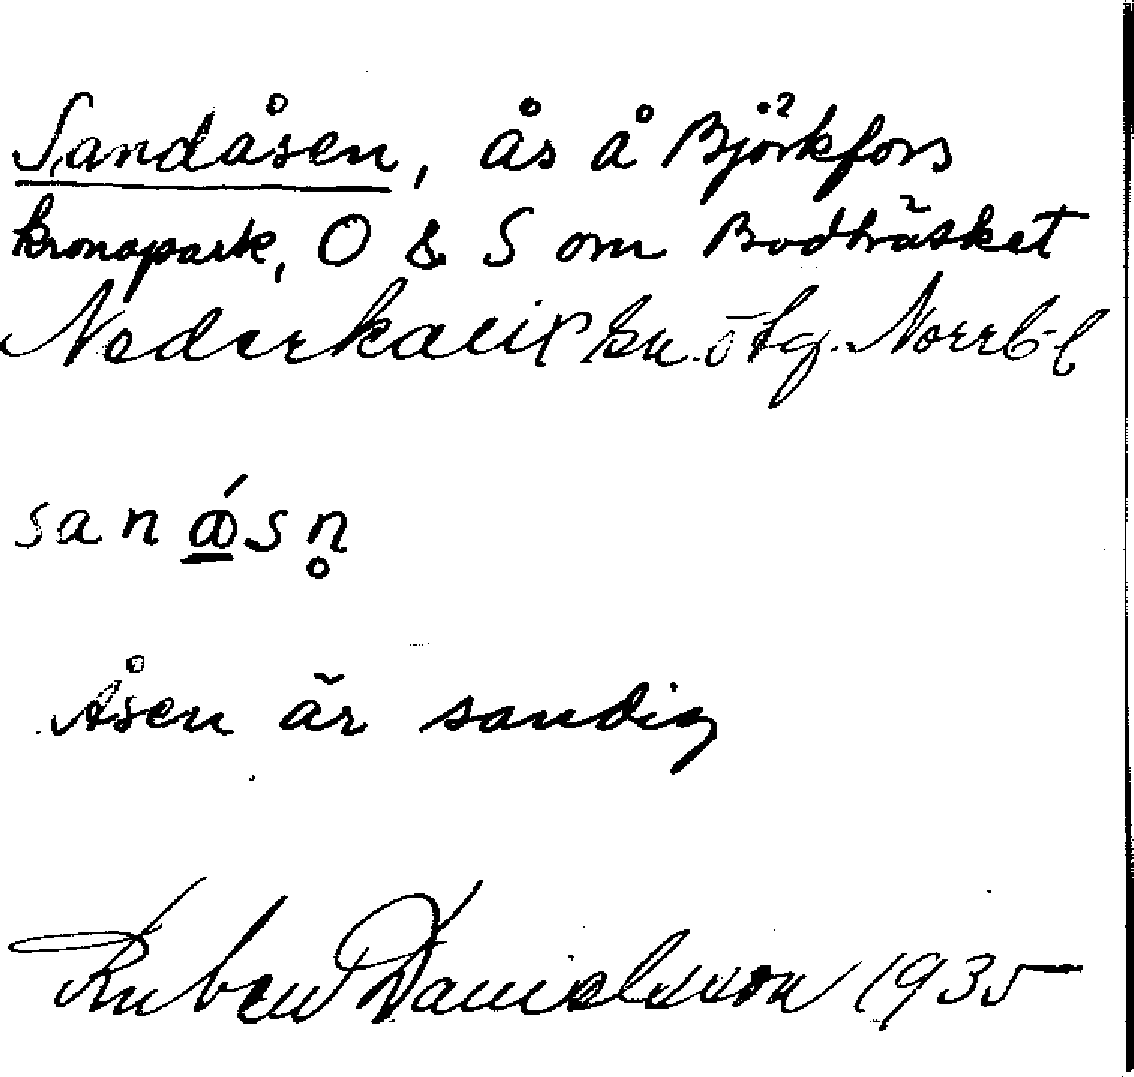 Sandåsen, ås å Björkfors
kronopark, O & S om Bodträsket
Nederkalix sn. ö tg. Norrb-l
sanåsn̥
Åsen är sandig
Ruben Danielsson 1935